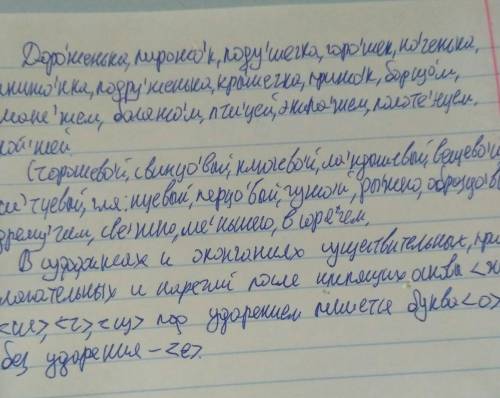 Доро́женька, пирожо́к, поду́шечка, горо́шек, но́женька,
подру́женька, кро́шечка, прыжо́к, борщо́м,
багажо́м, пти́цей, экипа́жем, полоте́нцем,
(Грошево́й, свинцо́вый, ключево́й, ла́ндышевый, вещево́й
си́тцевый, гля́нцевый, перцо́вый, чужо́й, ры́жего, образцо́в
дрему́чем, свежо́, ме́ньшего, в горя́чем,
В суффиксах и окончаниях существительных, при
лагательных и наречий после шипящих основы <ж
<ш>, <ч>, <щ> под ударением пишется буква <о>
без ударения – <е>.